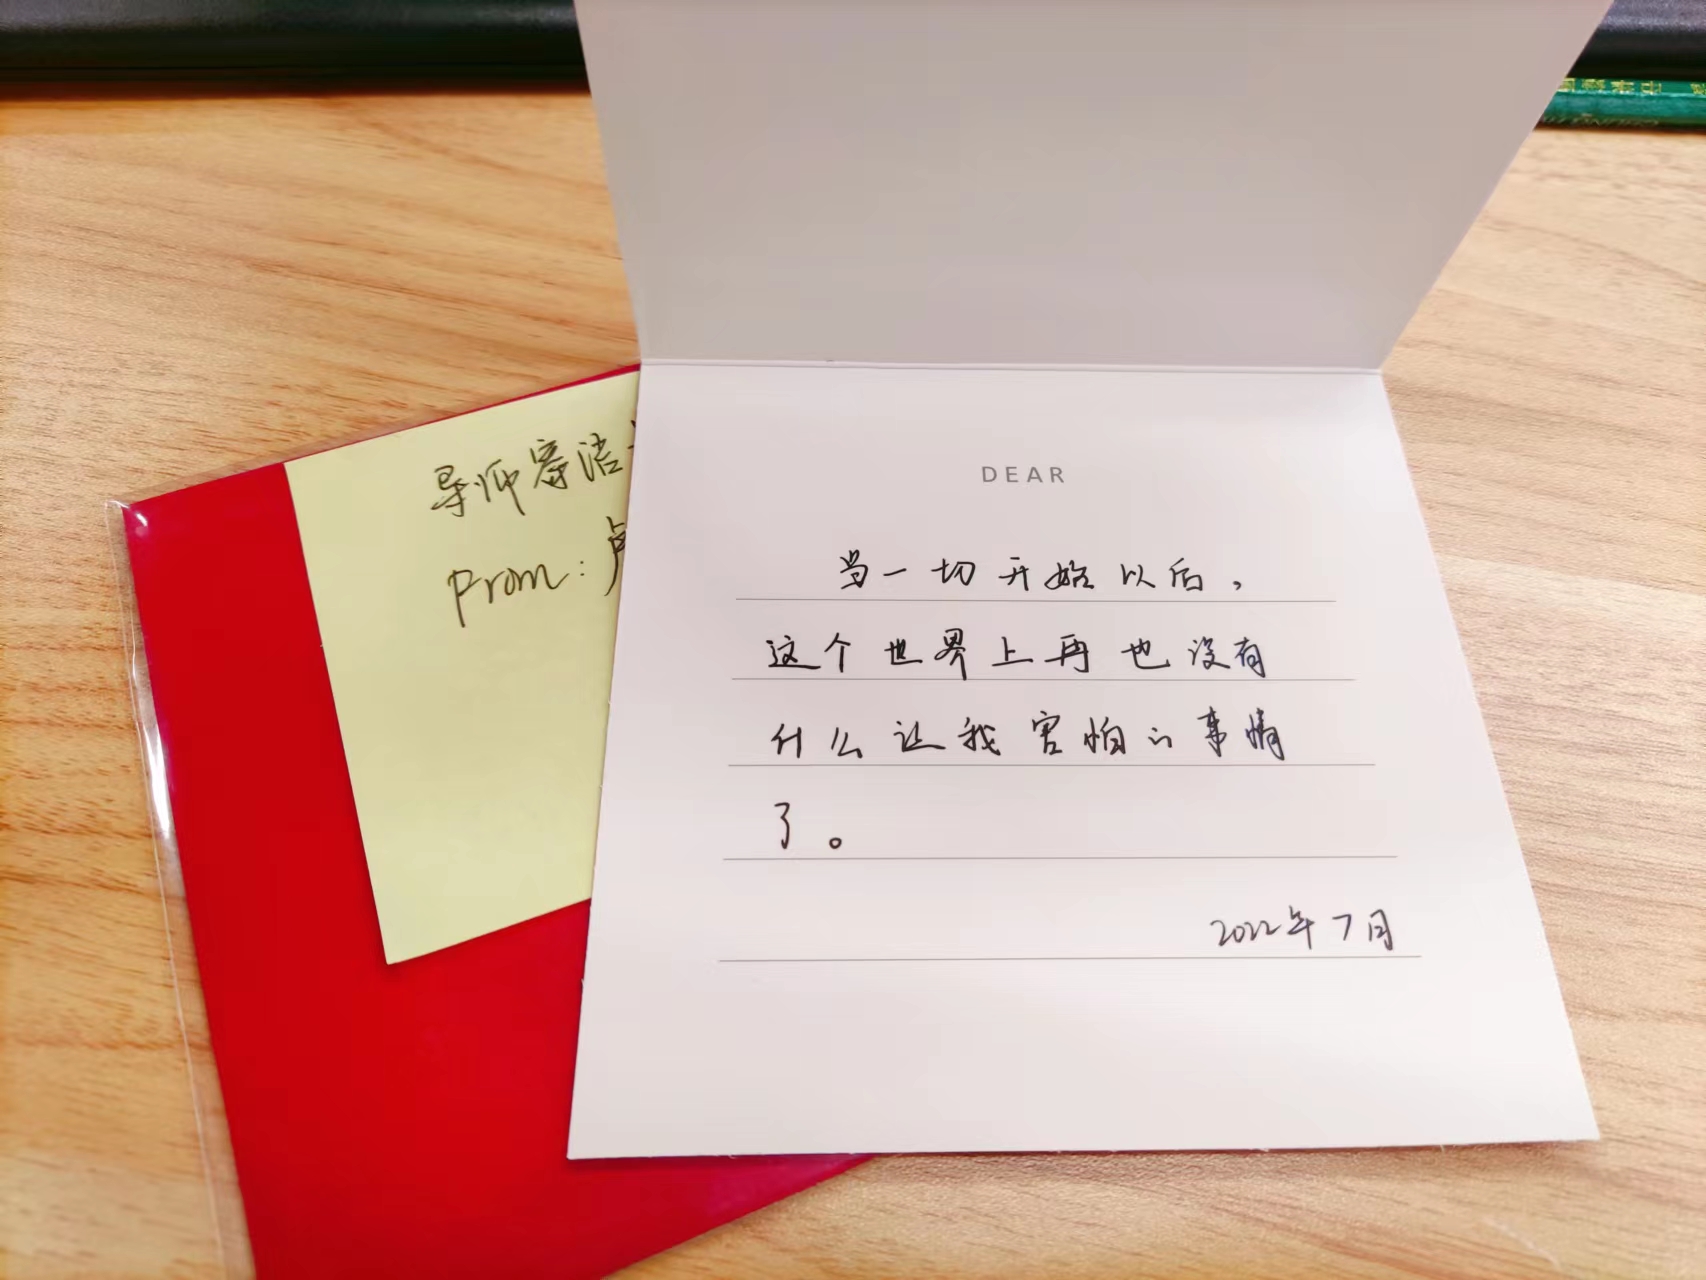 导师寄语
From: 卢
DEAR
当一切开始以后，
这个世界上再也没有
什么让我害怕的事情
了。
2022年7月